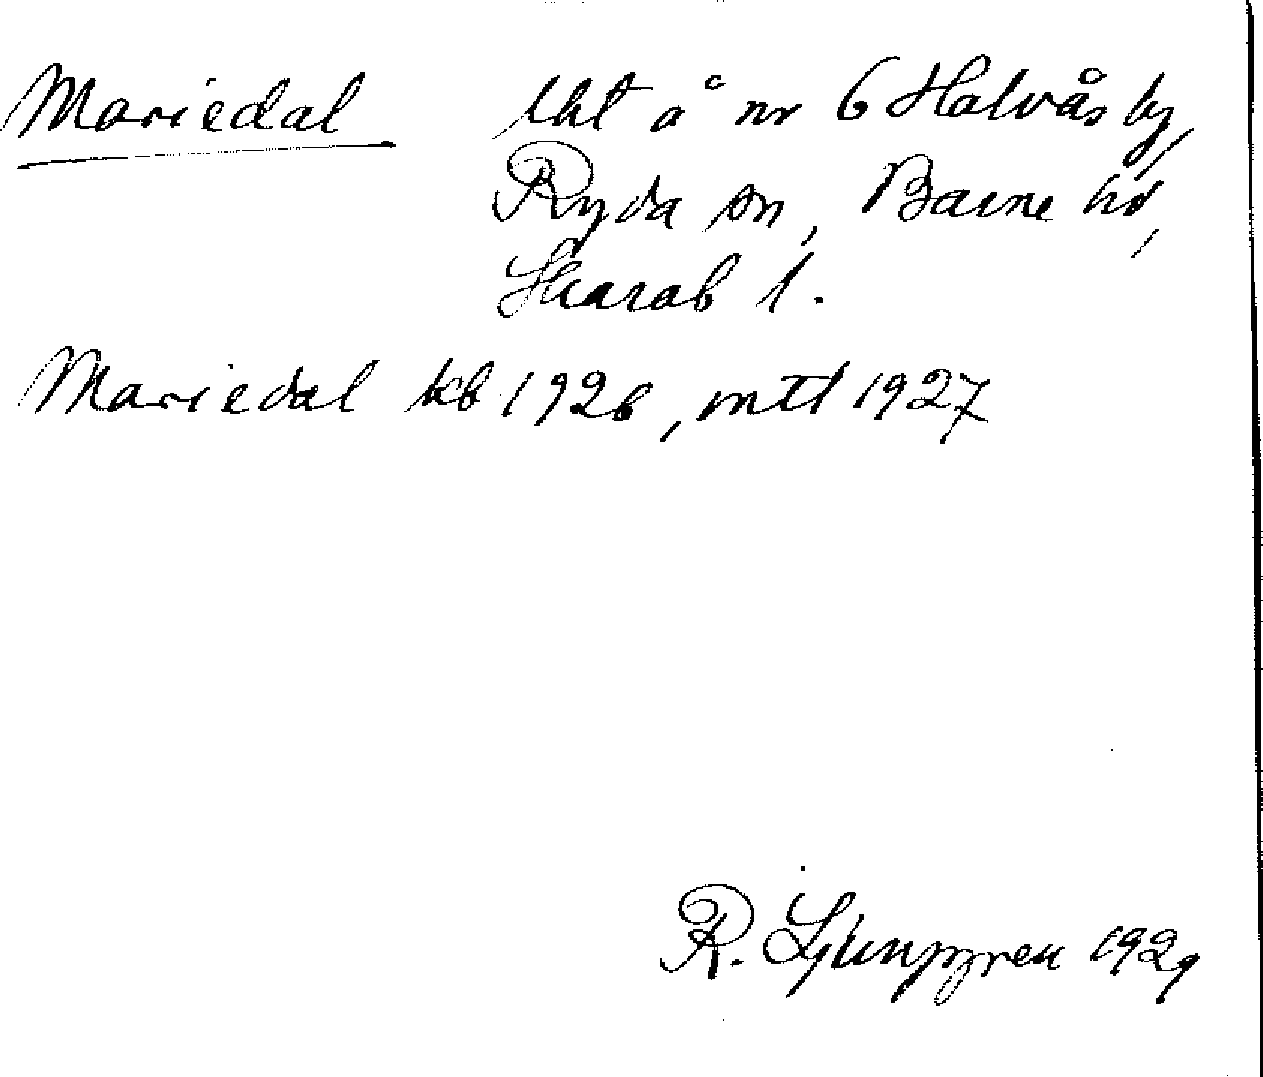 Mariedal lht å nr 6 Halvås by,
Ryda sn, Barne hd,
Skarab l.
Mariedal kb 1926, mtl 1927
R. Ljunggren 1929